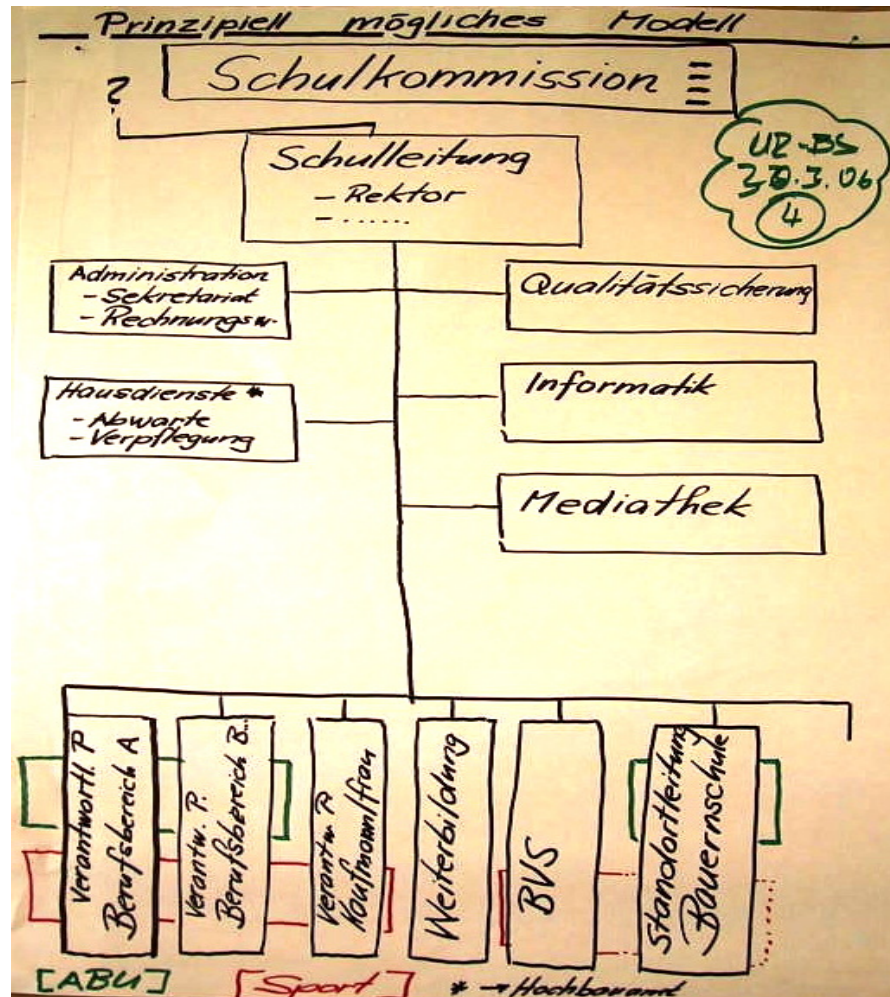 Prinzipiell mögliches Modell
Schulkommission
?
Schulleitung
- Rektor
- ......
UR-BS
30.3.06
4
Administration
- Sekretariat
- Rechnungsw.
Qualitätssicherung
Hausdienste *
- Abwarte
- Verpflegung
Informatik
Mediathek
Verantwortl. P
Berufsbereich A
Verantw. P.
Berufsbereich B...
Verantw. P.
Kaufmann/frau
Weiterbildung
BVS
Standortleitung
Bauernschule
[ABU]
[Sport]
* → Hochbauamt